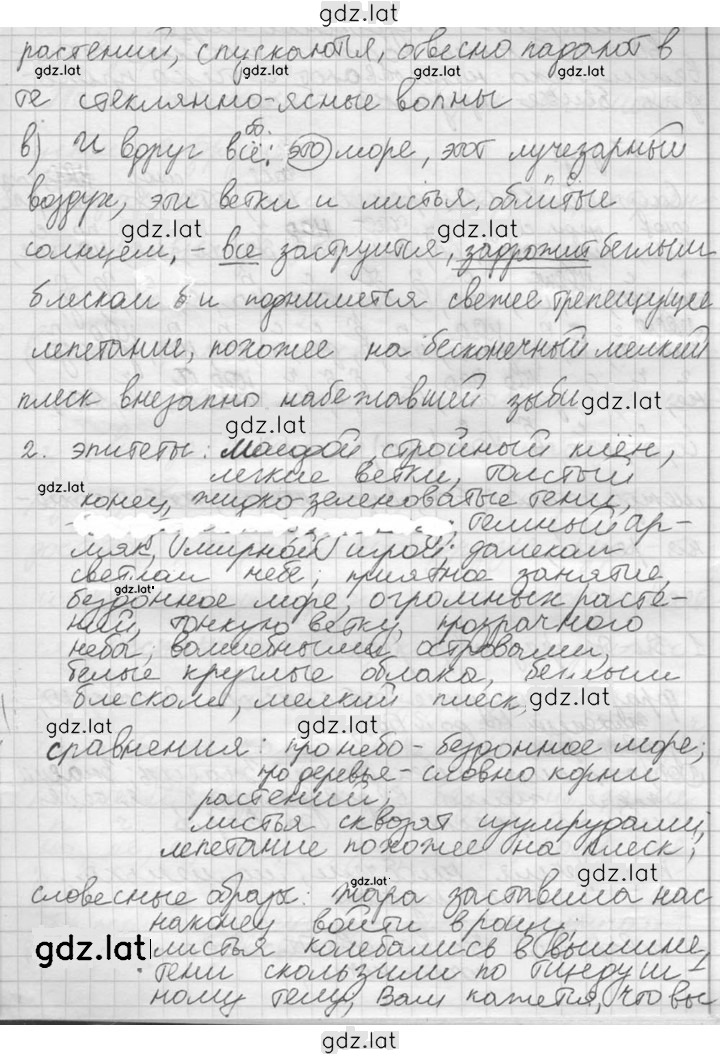 gdz.lat
растений, спускаются, отвесно падают в
gdz.lat gdz.lat gdz.lat
те стеклянно-ясные волны
об.
в) И вдруг всё: это море, этот лучезарный
воздух, эти ветки и листья, облитые
gdz.lat gdz.lat
солнцем, - все заструится, задрожит беглым
блеском и поднимется свежее трепещущее
лепетание, похожее на бесконечный мелкий
gdz.lat
плеск внезапно набежавшей зыби
gdz.lat
gdz.lat
2. эпитеты: молодой, стройный клён,
легкие ветки, толстый
gdz.lat
конец, жидко-зеленоватые тени,
темный ар-
мяк, (мирной) игрой; далеком
светлом небе; приятное занятие,
gdz.lat
бездонное море, огромных расте-
ний, тонкую ветку, прозрачного
неба; волшебными островами,
белые круглые облака, беглым
блеском, мелкий плеск,
gdz.lat
gdz.lat
сравнения: про небо - бездонное море;
про деревья - словно корни
растений;
листья сквозят изумрудами;
лепетание похожее на плеск;
gdz.lat
словесные образы: жара заставила нас
наконец войти в рощу;
gdz.lat gdz.lat
листья колебались в вышине,
тени скользили по тщедуш-
ному телу, Вам кажется, что вы
gdz.lat